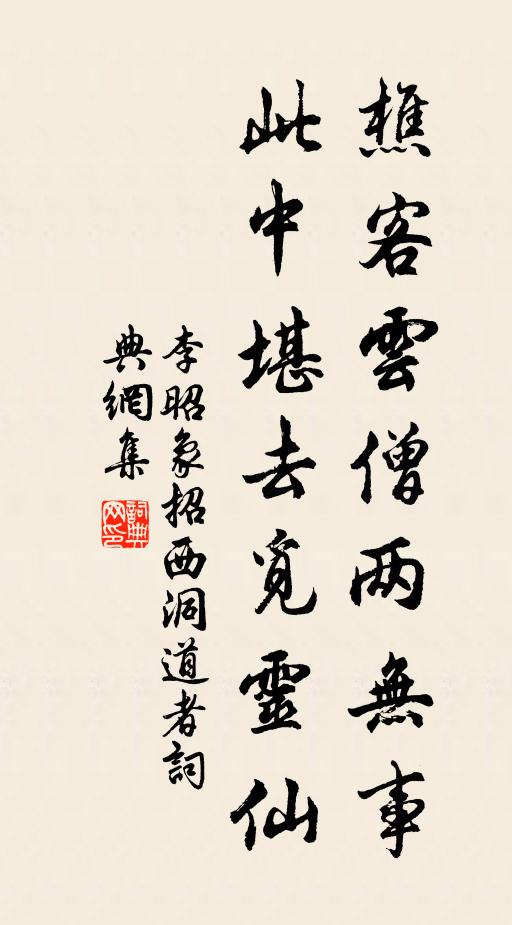 樵客雲僧两無事
此中堪去覓靈仙
李昭象招西洞道者詞
典網集
詞典网印